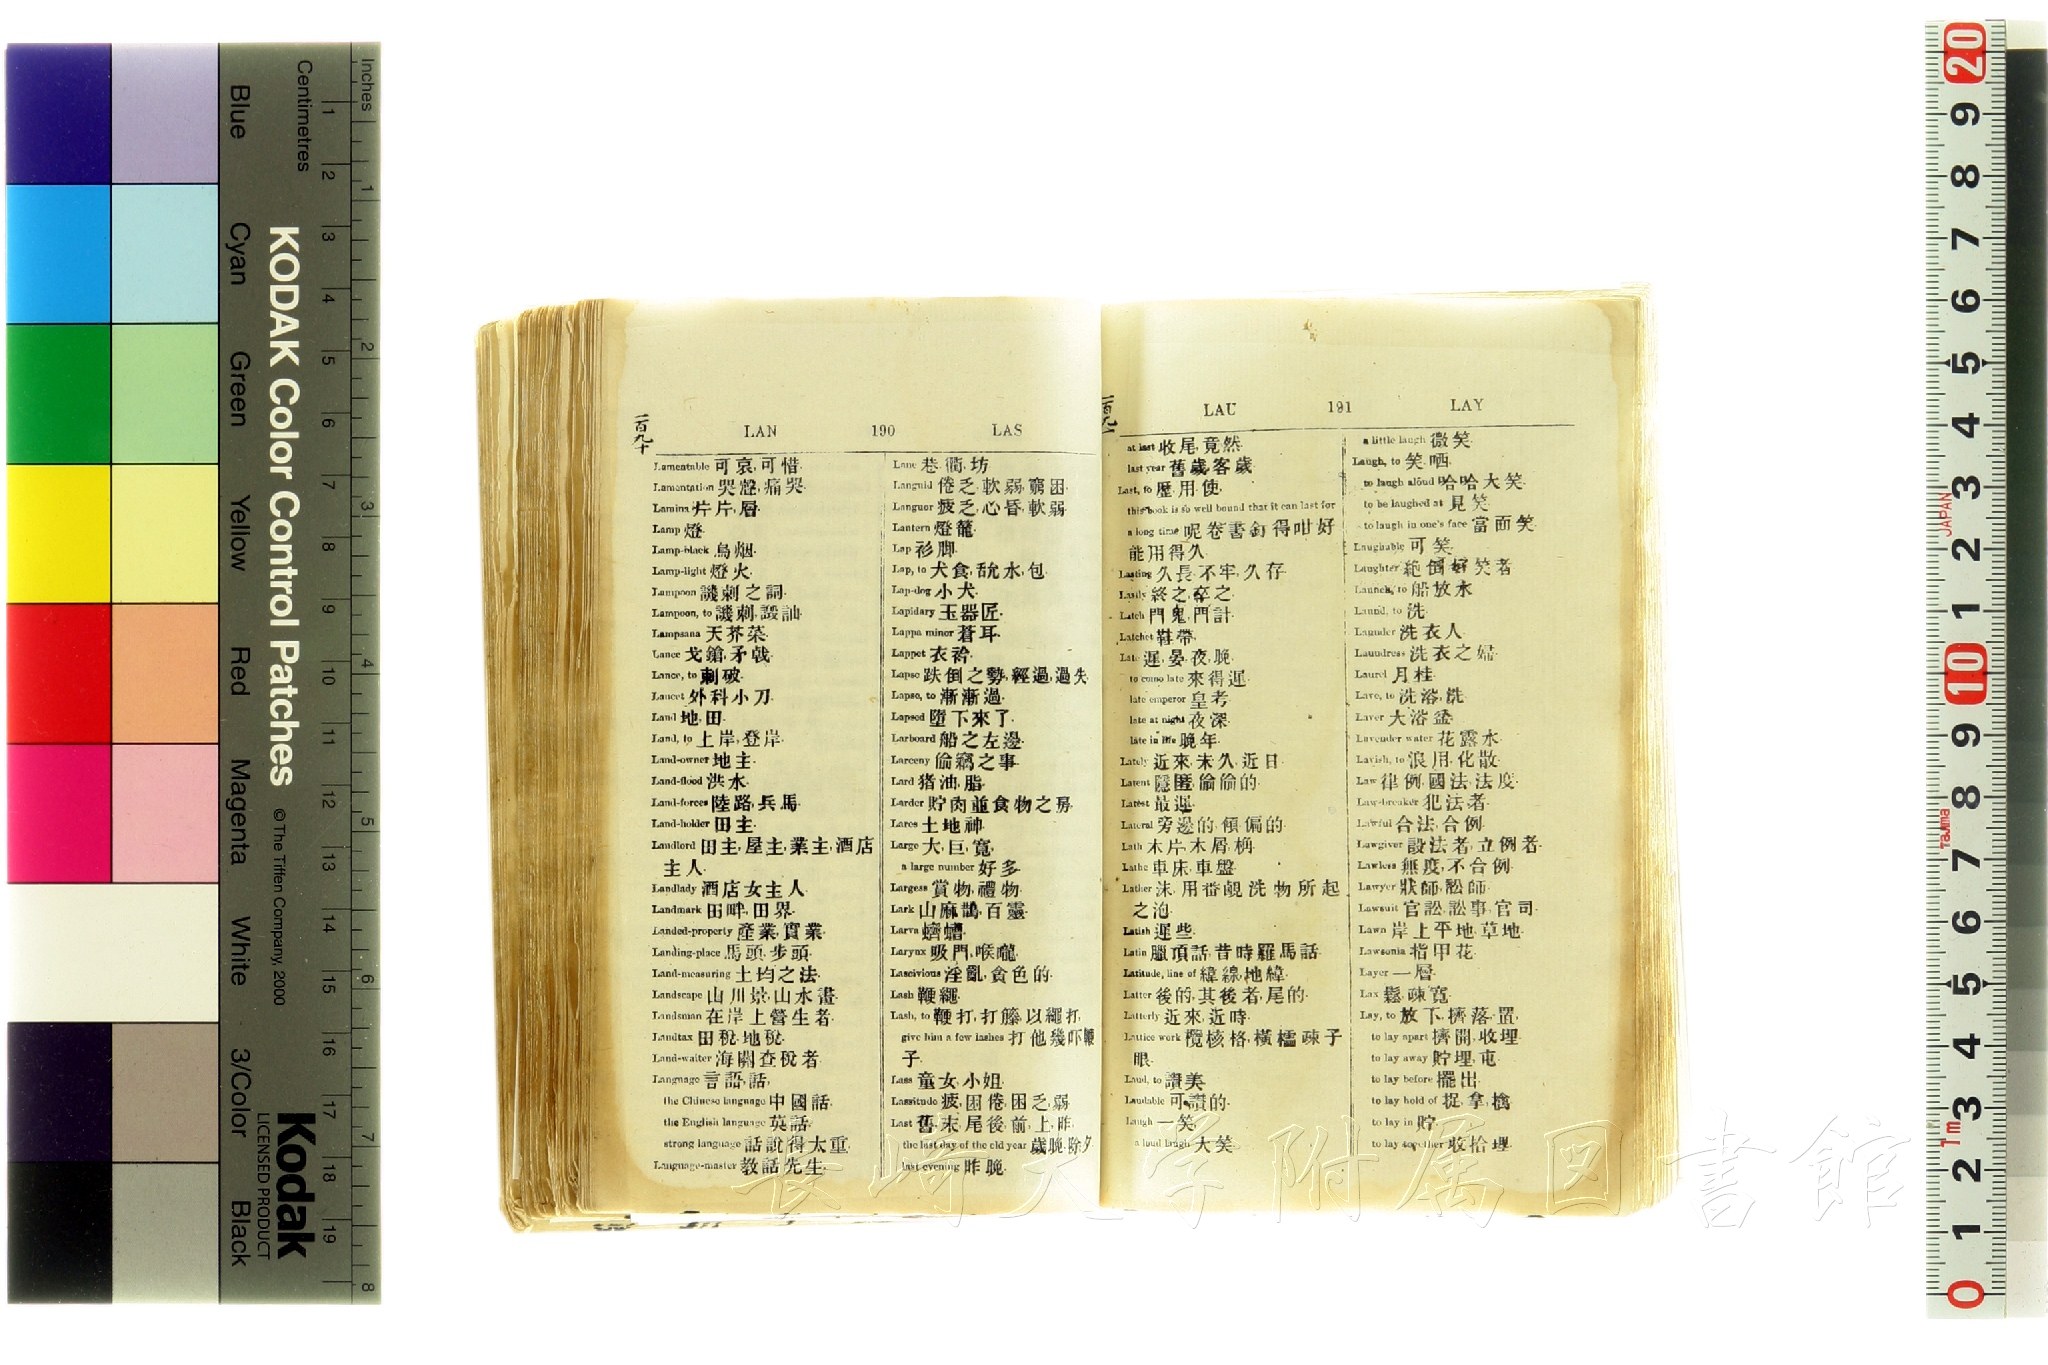 Blue
Cyan
Green
Yellow
Red
Magenta
White
3/Color
Black
Centimetres
Inches
KODAK Color Control Patches
© The Tiffen Company, 2000
Kodak
LICENSED PRODUCT
一百九十
LAN 190 LAS
Lamentable 可哀,可惜.
Lamentation 哭聲,痛哭.
Lamina 片片,層.
Lamp 燈.
Lamp-black 烏烟.
Lamp-light 燈火.
Lampoon 譏刺之詞.
Lampoon, to 譏刺,譭訕.
Lampsana 天芥菜.
Lance 戈鎗,矛戟.
Lance, to 刺破.
Lancet 外科小刀.
Land 地,田.
Land, to 上岸,登岸.
Land-owner 地主.
Land-flood 洪水.
Land-forces 陸路,兵馬.
Land-holder 田主.
Landlord 田主,屋主,業主,酒店
主人.
Landlady 酒店女主人.
Landmark 田畔,田界.
Landed-property 產業,實業.
Landing-place 馬頭,步頭.
Land-measuring 土均之法.
Landscape 山川景,山水畫.
Landsman 在岸上營生者.
Landtax 田稅,地稅.
Land-waiter 海關查役者.
Language 言語,話,
the Chinese language 中國話.
the English language 英話.
strong language 話說得太重.
Language-master 教話先生.
Lane 巷,衕,坊.
Languid 倦乏,軟弱,窮困.
Languor 疲乏,心昏,軟弱.
Lantern 燈籠.
Lap 衫脚.
Lap, to 犬食,舐水,包.
Lap-dog 小犬.
Lapidary 玉器匠.
Lappa minor 蒼耳.
Lappet 衣袷.
Lapse 跌倒之勢,輕過,過失.
Lapse, to 漸漸過.
Lapsed 墮下來了.
Larboard 船之左邊.
Larceny 偷竊之事.
Lard 猪油,脂.
Larder 貯肉並食物之房.
Lares 土地神.
Large 大,巨,寬.
a large number 好多.
Largess 賞物,禮物.
Lark 山麻鵲,百靈.
Larva 蠐螬.
Larynx 吸門,喉嚨.
Lascivious 淫亂,貪色的.
Lash 鞭繩.
Lash, to 鞭打,打籐,以繩打.
give him a few lashes 打他幾吓鞭
子.
Lass 童女,小姐.
Lassitude 疲,困倦,困乏,弱.
Last 舊,末,尾,後,前,上,昨.
the last day of the old year 歲晚,除夕
last evening 昨晚.
LAU 191 LAY
at last 收尾,竟然.
last year 舊歲,客歲.
Last, to 歷,用,使.
this book is so well bound that it can last for
a long time 呢卷書釘得咁好
能用得久.
Lasting 久長,不牢,久存.
Lastly 終之,卒之.
Latch 門鬼,門計.
Latchet 鞋帶.
Late 遲,晏,夜,晚.
to come late 來得遲.
late emperor 皇考.
late at night 夜深.
late in life 晚年.
Lately 近來,未久,近日.
Latent 隱匿,偷偷的.
Latest 最遲.
Lateral 旁邊的,傾偏的.
Lath 木片,木屑,枬.
Lathe 車床,車盤.
Lather 沫,用番梘洗物所起
之泡.
Latish 遲些.
Latin 臘頂話,昔時羅馬話.
Latitude, line of 緯線,地緯.
Latter 後的,其後者,尾的.
Latterly 近來,近時.
Lattice work 欖核格,橫櫺疎子
眼.
Laud, to 讚美.
Laudable 可讚的.
Laugh 一笑.
a loud laugh 大笑.
a little laugh 微笑.
Laugh, to 笑,哂.
to laugh aloud 哈哈大笑.
to be laughed at 見笑.
to laugh in one's face 當面笑.
Laughable 可笑.
Laughter 絕倒,好笑者.
Launch, to 船放水.
Laund, to 洗.
Launder 洗衣人.
Laundress 洗衣之婦.
Laurel 月桂.
Lave, to 洗浴,洗.
Laver 大浴盆.
Lavender water 花露水.
Lavish, to 浪用,化散.
Law 律例,國法,法度.
Law-breaker 犯法者.
Lawful 合法,合例.
Lawgiver 設法者,立例者.
Lawless 無度,不合例.
Lawyer 狀師,訟師.
Lawsuit 官訟,訟事,官司.
Lawn 岸上平地,草地.
Lawsonia 指甲花.
Layer 一層.
Lax 鬆,疎,寬.
Lay, to 放下,擠落,置.
to lay apart 擠開,收埋.
to lay away 貯埋,屯.
to lay before 擺出.
to lay hold of 捉,拿,擒.
to lay in 貯.
to lay together 收拾埋.
長崎大学附属図書館
JAPAN
Tajima
1m